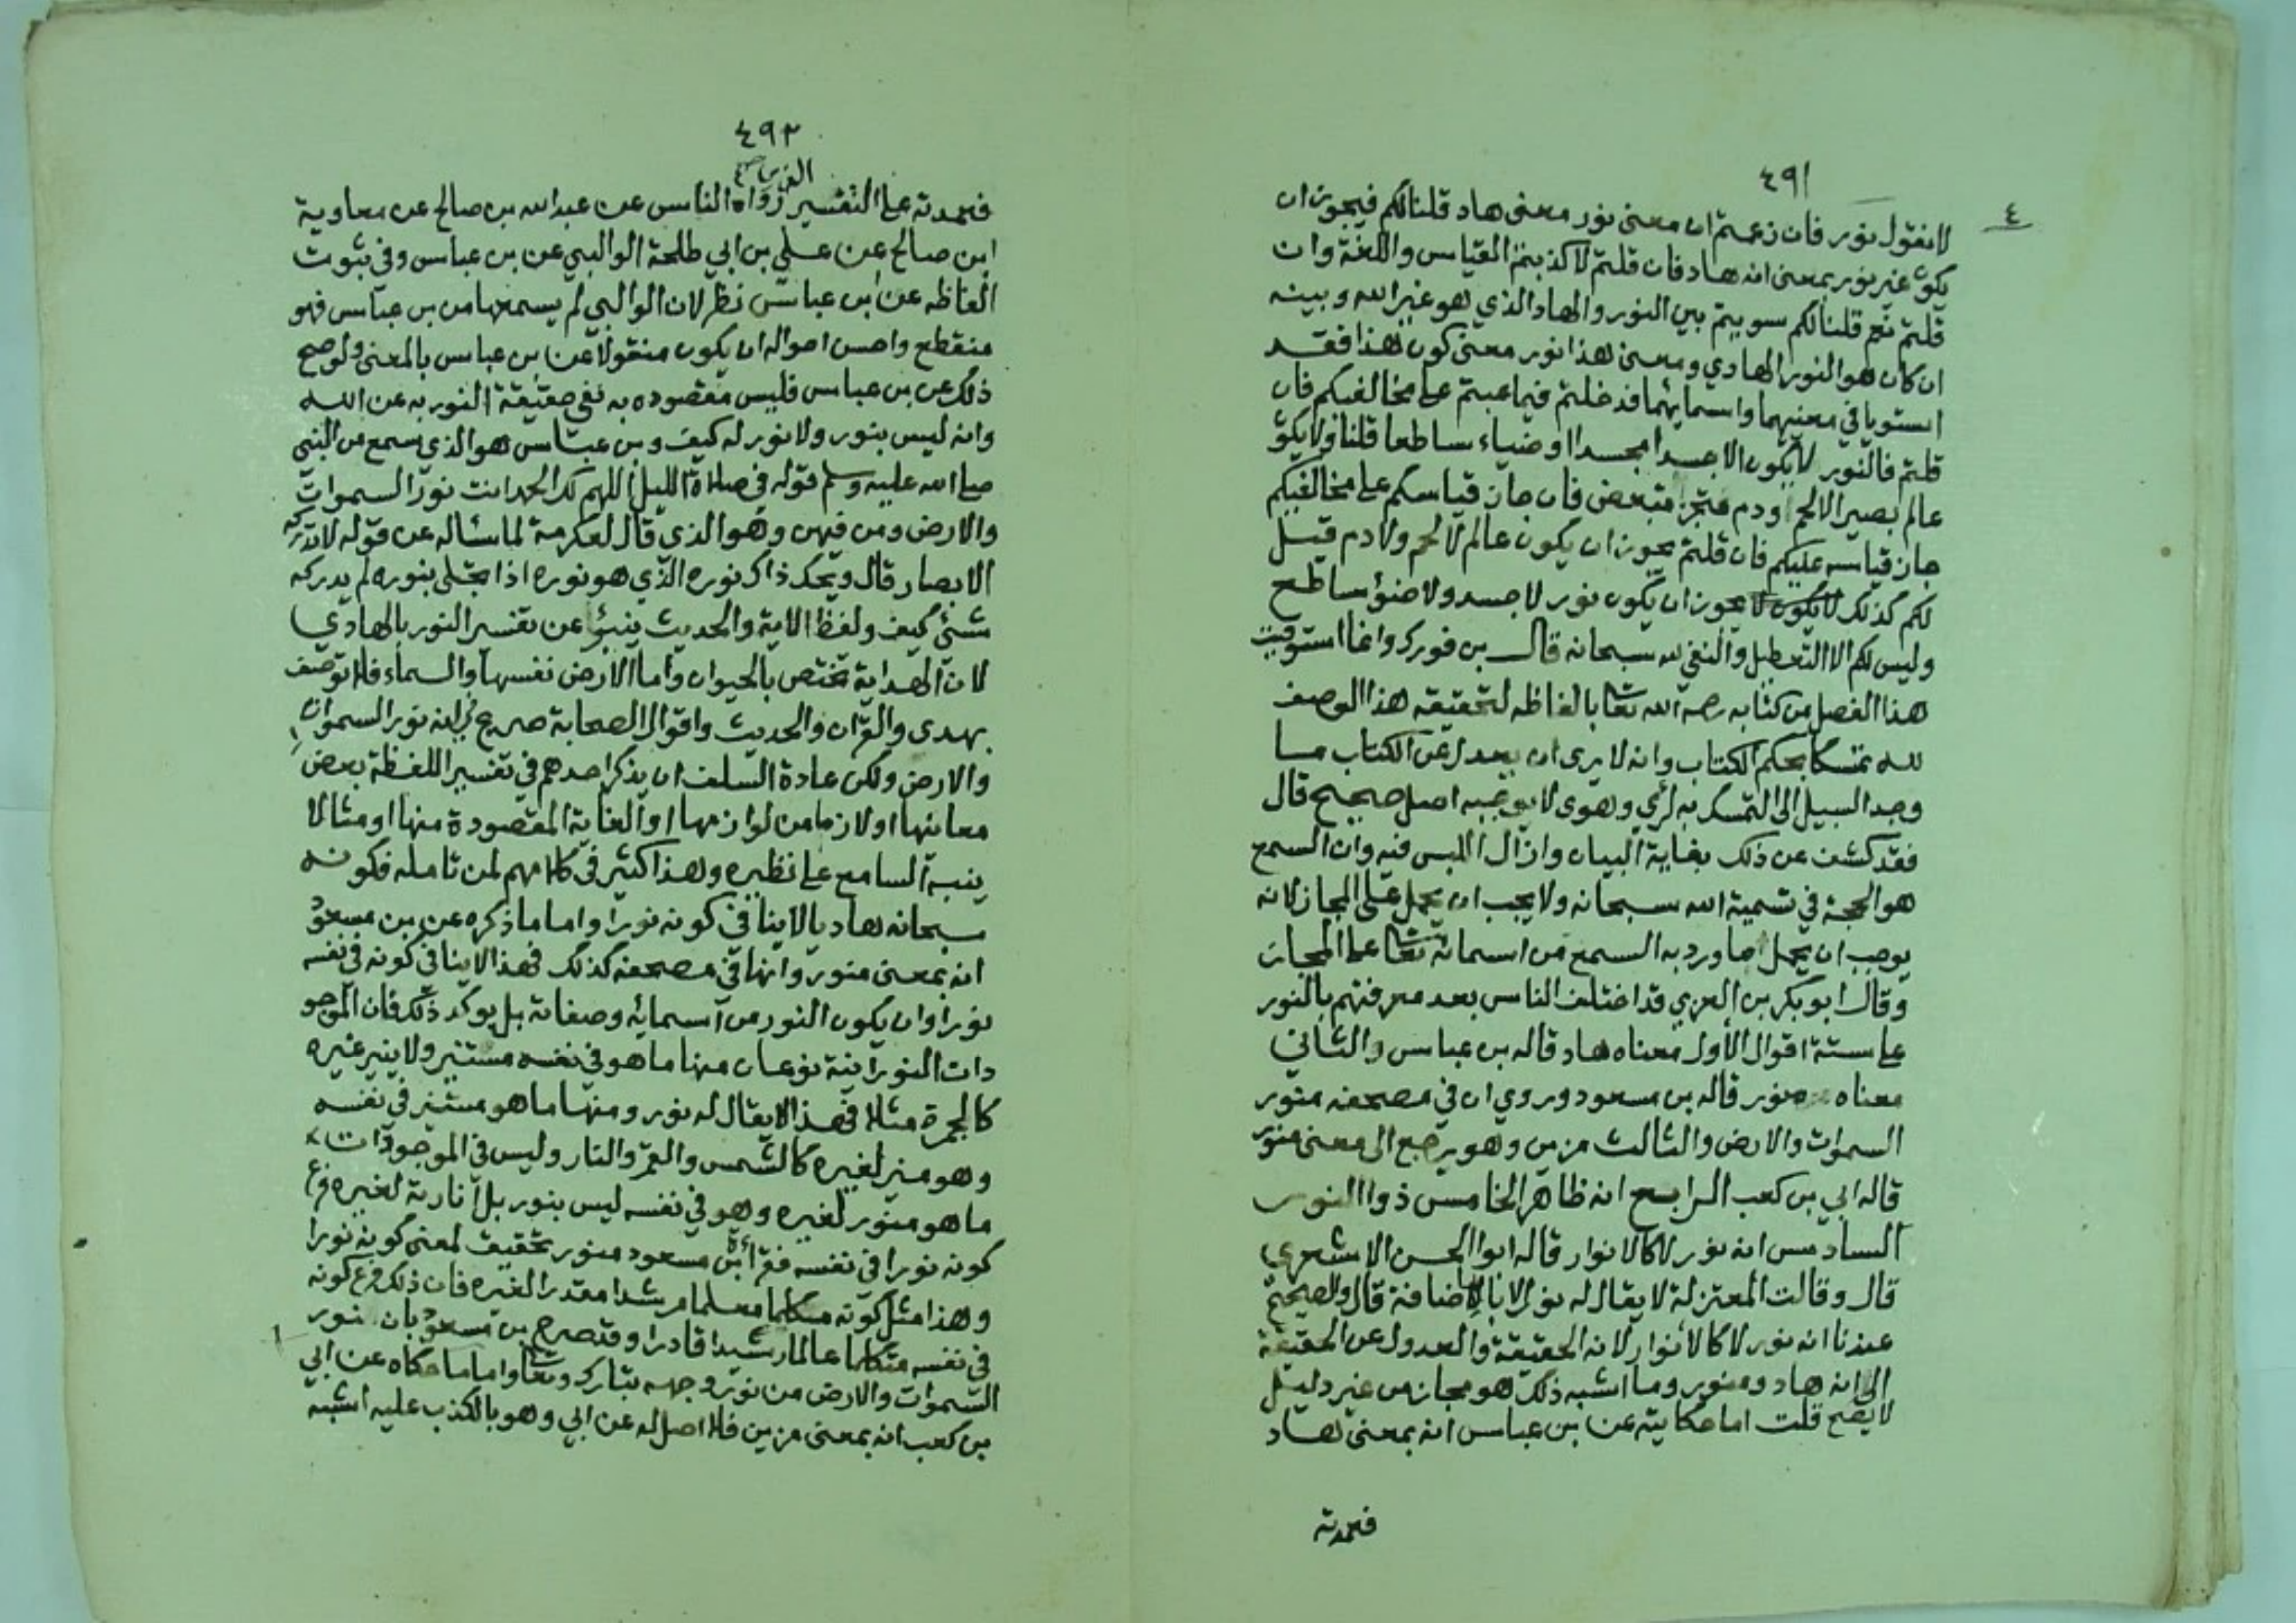 ٤٩١
٤
لا نقول نور فان زعمتم ان معنى نور معنى هاد قلنا لكم فيجوز ان
يكون غير نور بمعنى انه هاد فان قلتم لا كذبتم القياس واللغة وان
قلتم نعم قلنا لكم سويتم بين النور والهاد الذي هو غير الله وبينه
ان كان هو النور الهادي ومعنى هذا نور معنى كون هذا فقد
استويا في معنيهما واسمايهما فدخلتم فيما عبتم على مخالفيكم فان
قلتم فالنور لا يكون الا جسدا مجسدا او ضياء ساطعا قلنا ولا يكون
عالم بصير الا لحم ودم متجز متبعض فان جاز قياسكم على مخالفيكم
جاز قياسه عليكم فان قلتم يجوز ان يكون عالم لا لحم ولا دم قيل
لكم كذلك لا يكون لا يجوز ان يكون نور لا جسد ولا ضوء ساطع
وليس لكم الا التعطيل والنفي لله سبحانه قال بن فورك وانما استوفيت
هذا الفصل من كتابه رحمه الله تعا بالفاظه لتحقيقه هذا الوصف
لله تمسكا بحكم الكتاب وانه لا يرى ان يعدل عن الكتاب ما
وجد السبيل الى التمسك به لرأي وهوى لا يوجبه اصل صحيح قال
فقد كشف عن ذلك بغاية البيان وازال اللبس فيه وان السمع
هو الحجة في تسمية الله سبحانه ولا يجب ان يحمل على المجاز لانه
يوجب ان يحمل ما ورد به السمع من اسمائه تعا على المجاز
وقال ابو بكر بن العربي قد اختلف الناس بعد معرفتهم بالنور
على ستة اقوال الاول معناه هاد قاله بن عباس والثاني
معناه منور قاله بن مسعود وروي ان في مصحفه منور
السموات والارض والثالث مزين وهو يرجع الى معنى منور
قاله ابي بن كعب الرابع انه ظاهر الخامس ذوا النور
السادس انه نور لا كالانوار قاله ابوا الحسن الاشعري
قال وقالت المعتزلة لا يقال له نور الا بالاضافة قال والصحيح
عندنا انه نور لا كالانوار لانه الحقيقة والعدول عن الحقيقة
الى انه هاد ومنور وما اشبه ذلك هو مجاز من غير دليل
لا يصح قلت اما حكايته عن بن عباس انه بمعنى هاد
فعمدته
٤٩٢
فعمدته على التفسير رواه الناس عن عبد الله بن صالح عن معاوية
ابن صالح عن علي بن ابي طلحة الوالبي عن بن عباس وفي ثبوت
الفاظه عن ابن عباس نظر لان الوالبي لم يسمعها من بن عباس فهو
منقطع واحسن احواله ان يكون منقولا عن بن عباس بالمعنى ولو صح
ذلك عن بن عباس فليس مقصوده به نفي حقيقة النور به عن الله
وانه ليس بنور ولا نور له كيف وبن عباس هو الذي سمع من النبي
صلى الله عليه وسلم قوله في صلاة الليل اللهم لك الحمد انت نور السموات
والارض ومن فيهن وهو الذي قال لعكرمة لما سئاله عن قوله لا تدركه
الابصار قال ويحك ذاك نوره الذي هو نوره اذا تجلى بنوره لم يدركه
شئ كيف ولفظ الاية والحديث ينبؤا عن تفسير النور بالهادي
لان الهداية تختص بالحيوان واما الارض نفسها والسماء فلا توصف
بهدى والقران والحديث واقوال الصحابة صريح بانه نور السموات
والارض ولكن عادة السلف ان يذكر احدهم في تفسير اللفظة بعض
معانيها او لازما من لوازمها او الغاية المقصودة منها او مثالا
ينبه السامع على نظيره وهذا كثير في كلامهم لمن تامله فكونه
سبحانه هاديا لا ينافي كونه نورا واما ما ذكره عن بن مسعود
انه بمعنى منور وانها في مصحفه كذلك فهذا لا ينافي كونه في نفسه
نورا وان يكون النور من اسمائه وصفاته بل يوكد ذلك فان الموجو
دات النورانية نوعان منها ما هو في نفسه مستنير ولا ينير غيره
كالجمرة مثلا فهذا لا يقال له نور ومنها ما هو مستنير في نفسه
وهو منير لغيره كالشمس والقمر والنار وليس في الموجودات
ما هو منور لغيره وهو في نفسه ليس بنور بل انارته لغيره فرع
كونه نورا في نفسه فقرأة ابن مسعود منور تحقيق لمعنى كونه نورا
وهذا مثل كونه متكلما معلما مرشدا مقدرا لغيره فان ذلك فرع كونه
في نفسه متكلما عالما رشيدا قادرا وقد تصريح بن مسعود بان نور
السموات والارض من نور وجهه تبارك وتعا واما ما حكاه عن ابي
بن كعب انه بمعنى مزين فلا اصل له عن ابي وهو بالكذب عليه اشبه